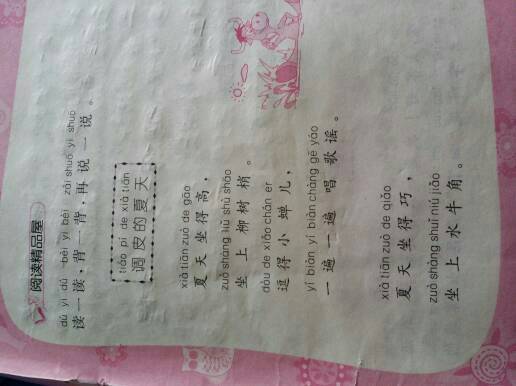 阅读精品屋
dú yi dú bèi yi bèi zài shuō yi shuō
读一读，背一背，再说一说。
tiáo pí de xià tiān
调皮的夏天
xià tiān zuò de gāo
夏天坐得高，
zuò shàng liǔ shù shāo
坐上柳树梢。
dòu de xiǎo chán er
逗得小蝉儿，
yí biàn yí biàn chàng gē yáo
一遍一遍唱歌谣。
xià tiān zuò de qiǎo
夏天坐得巧，
zuò shàng shuǐ niú jiǎo
坐上水牛角。